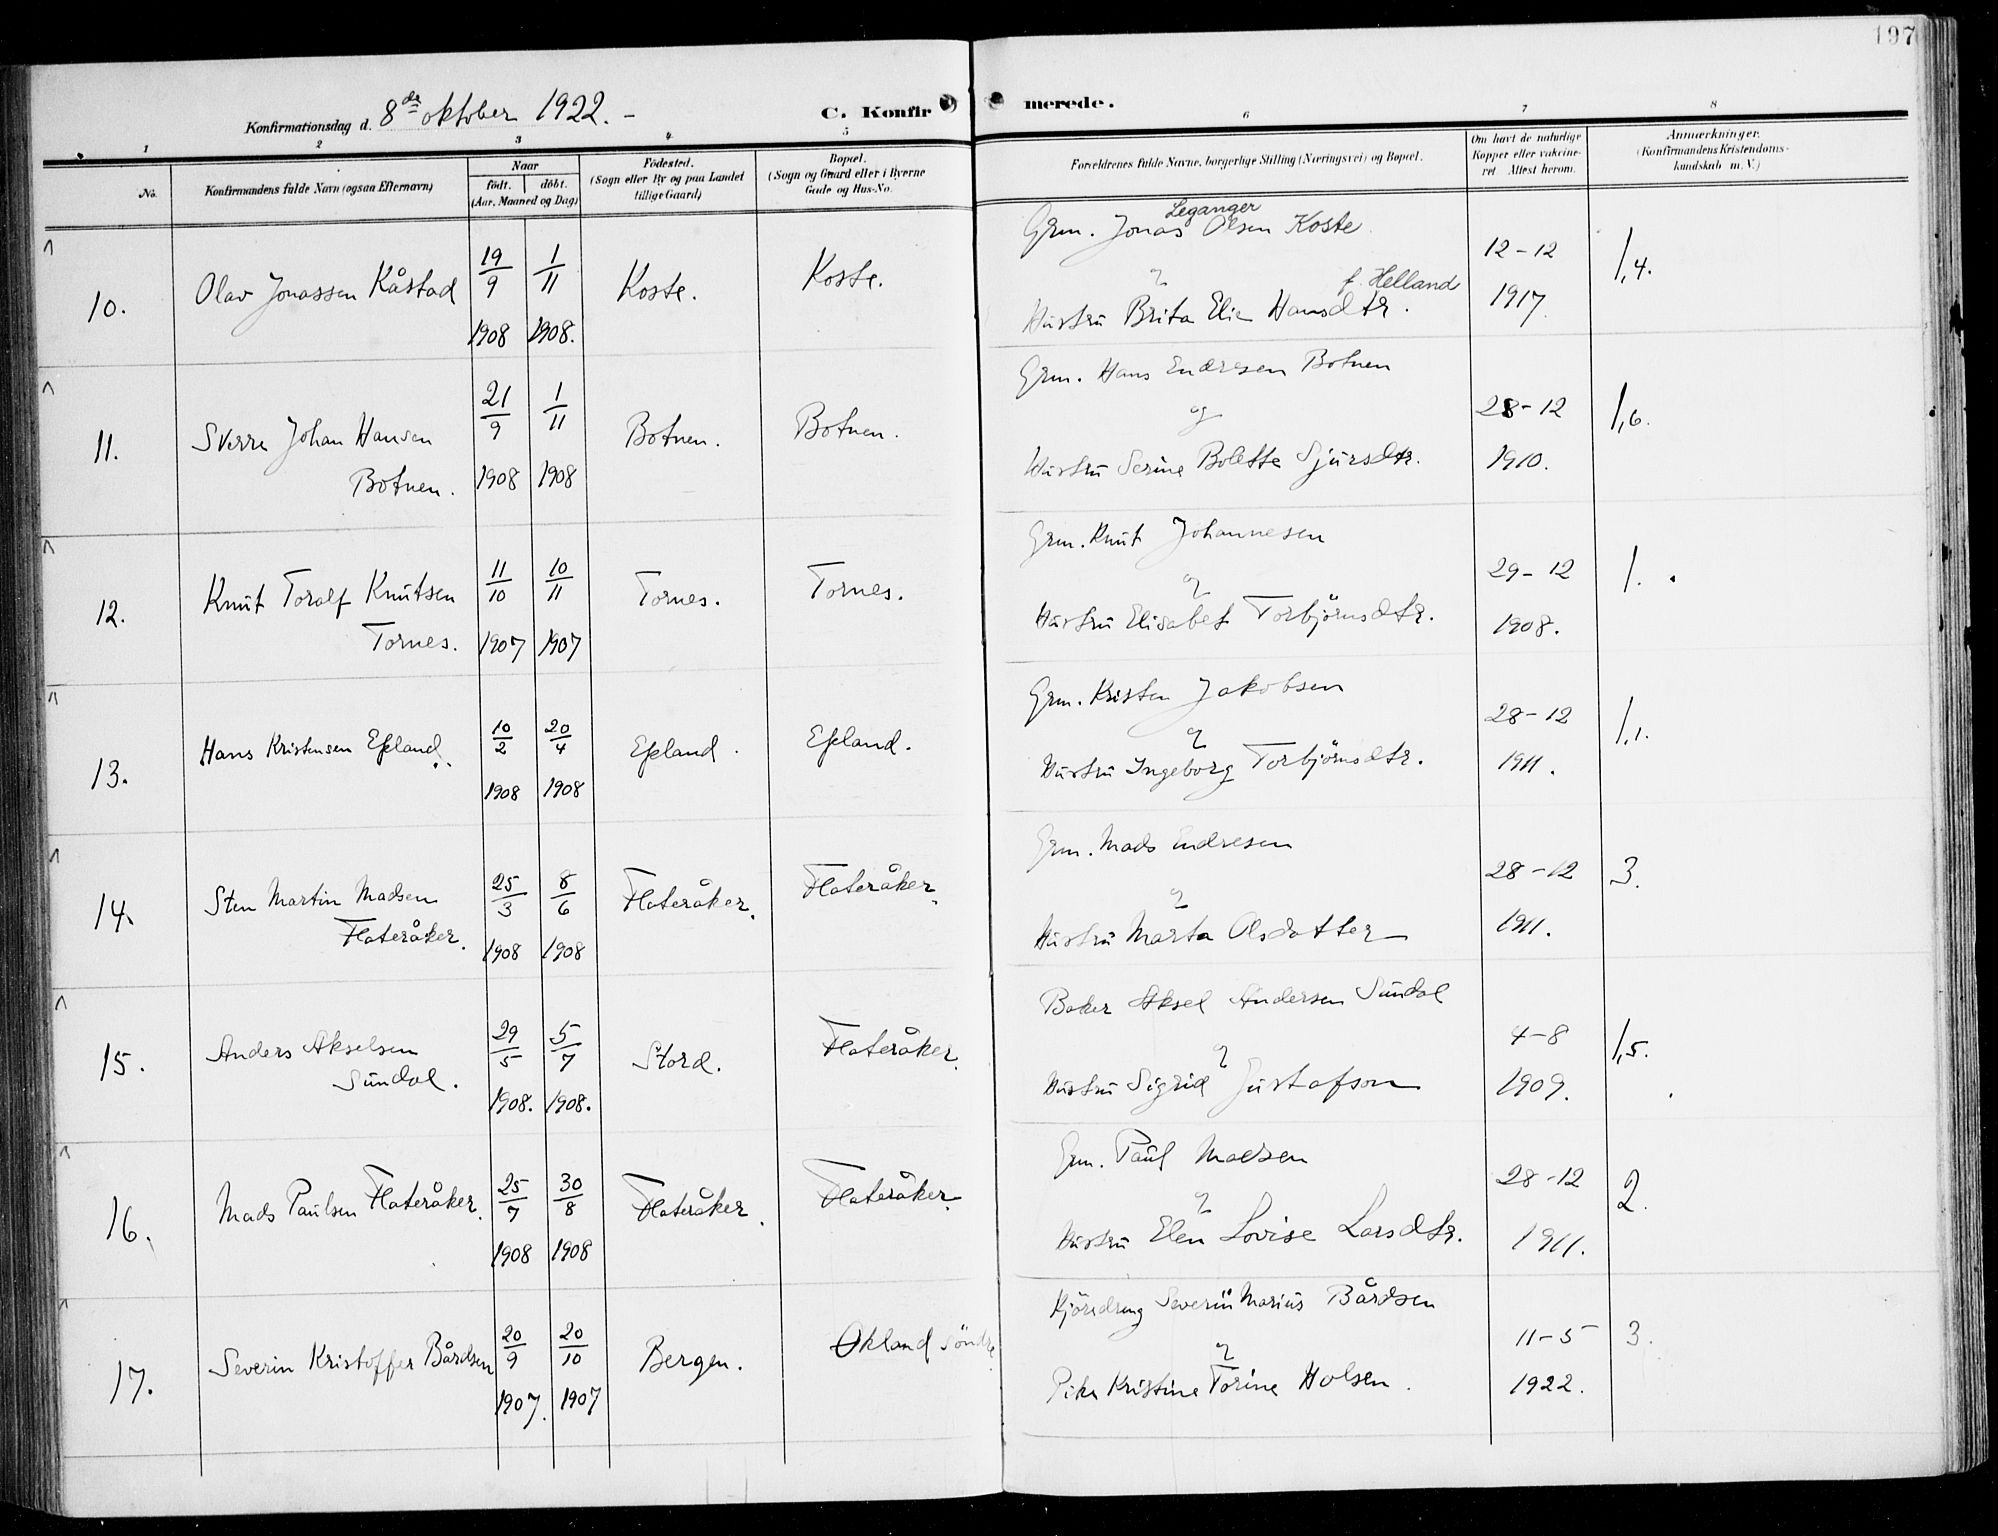 197
Konfirmationsdag d. 8de oktober 1922.-
C. Konfirmerede.
1 2 3 4 5 6 7 8
No.
Konfirmandens fulde Navn (ogsaa Efternavn)
Naar
födt. döbt.
(Aar, Maaned og Dag)
Födested.
(Sogn eller By og paa Landet
tillige Gaard)
Bopæl.
(Sogn og Gaard eller i Byerne
Gade og Hus-No.
Forældrenes fulde Navne, borgerlige Stilling (Næringsvei) og Bopæl.
Om havt de naturlige
Kopper eller vakcine-
ret Attest herom.
Anmærkninger.
(Konfirmandens Kristendoms-
kundskab m. V.)
10.
Olav Jonassen Kåstad
19/9 1908
1/11 1908.
Koste.
Koste.
Leganger
Grm. Jonas Olsen Koste
f. Helland
Hustru Brita Elie Hansdtr.
12-12
1917.
1,4.
11.
Sverre Johan Hansen
Botnen.
21/9 1908
1/11 1908
Botnen.
Botnen.
Grm. Hans Endresen Botnen
og
Hustru Serine Bolette Sjursdtr.
28-12
1910.
1,6.
12.
Knut Toralf Knutsen
Tornes.
11/10 1907
10/11 1907
Tornes.
Tornes.
Grm. Knut Johannesen
Hustru Elisabet Torbjörnsdtr.
29-12
1908.
1.
13.
Hans Kristensen Epland.
10/2 1908
20/4 1908
Epland.
Epland.
Grm. Kristen Jakobsen
Hustru Ingeborg Torbjörnsdtr.
28-12
1911.
1,1.
14.
Sten Martin Madsen
Flateråker.
25/3 1908
8/6 1908
Flateråker.
Flateråker.
Grm. Mads Endresen
Hustru Marta Olsdatter
28-12
1911.
3.
15.
Anders Akselsen
Sundal.
29/5 1908.
5/7 1908.
Stord.
Flateråker.
Baker Aksel Andersen Sundal
Hustru Sigrid Gustafson
4-8
1909.
1,5.
16.
Mads Paulsen Flateråker.
25/7 1908
30/8 1908
Flateråker.
Flateråker.
Grm. Paul Madsen
Hustru Elen Lovise Larsdtr.
28-12
1911.
2.
17.
Severin Kristoffer Bårdsen
20/9 1907.
20/10 1907
Bergen.
Økland Söndre
Kjöredreng Severin Marius Bårdsen
Pike Kristine Torine Holsen.
11-5
1922.
3.